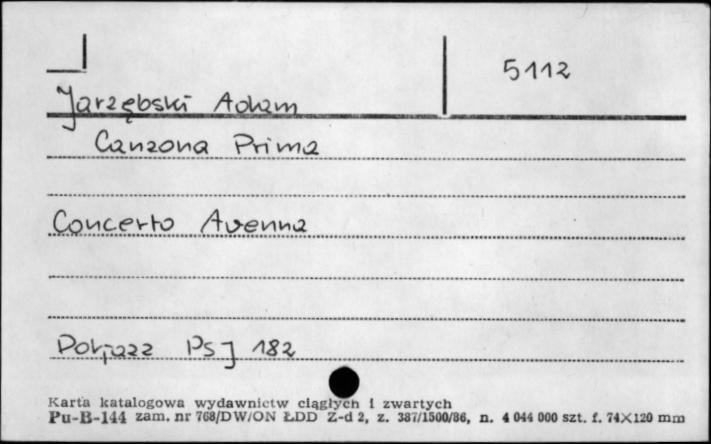 5112
Jarzębski Adam
Canzona Prima
Concerto Avenna
Poljazz PSJ 182
Karta katalogowa wydawnictw ciągłych i zwartych
Pu-B-144 zam. nr 768/DW/ON ŁDD Z-d 2, z. 387/1500/86, n. 4 044 000 szt. f. 74×120 mm